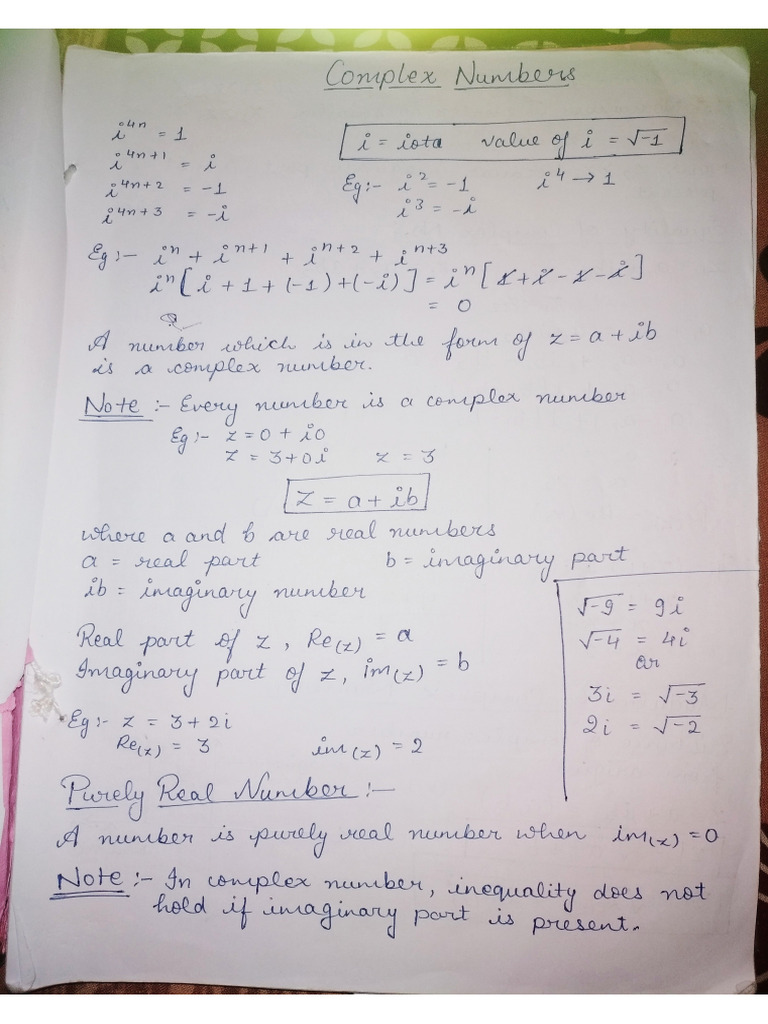 Complex Numbers
i⁴ⁿ = 1
i⁴ⁿ⁺¹ = i
i⁴ⁿ⁺² = -1
i⁴ⁿ⁺³ = -i
i = iota value of i = √-1
Eg:- i² = -1 i⁴ → 1
i³ = -i
Eg:- iⁿ + iⁿ⁺¹ + iⁿ⁺² + iⁿ⁺³
iⁿ[i + 1 + (-1) + (-i)] = iⁿ[1 + i - 1 - i]
= 0
A number which is in the form of z = a + ib
is a complex number.
Note :- Every number is a complex number
Eg:- z = 0 + i0
z = 3 + 0i z = 3
Z = a + ib
where a and b are real numbers
a = real part b = imaginary part
ib = imaginary number
Real part of z, Re(z) = a
Imaginary part of z, im(z) = b
Eg:- z = 3 + 2i
Re(z) = 3 im(z) = 2
√-9 = 9i
√-4 = 4i
or
3i = √-3
2i = √-2
Purely Real Number :-
A number is purely real number when im(z) = 0
Note :- In complex number, inequality does not
hold if imaginary part is present.